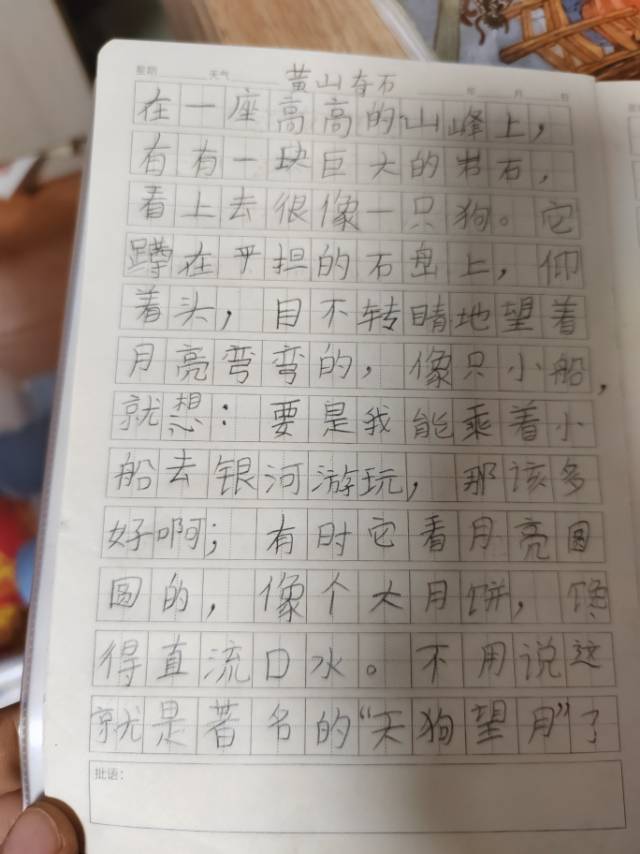 星期 天气 黄山奇石 年 月 日
在一座高高的山峰上，
有有一块巨大的岩石，
看上去很像一只狗。它
蹲在平担的石盘上，仰
着头，目不转睛地望着
月亮弯弯的，像只小船，
就想：要是我能乘着小
船去银河游玩，那该多
好啊；有时它看月亮圆
圆的，像个大月饼，馋
得直流口水。不用说这
就是著名的“天狗望月”了
批语：